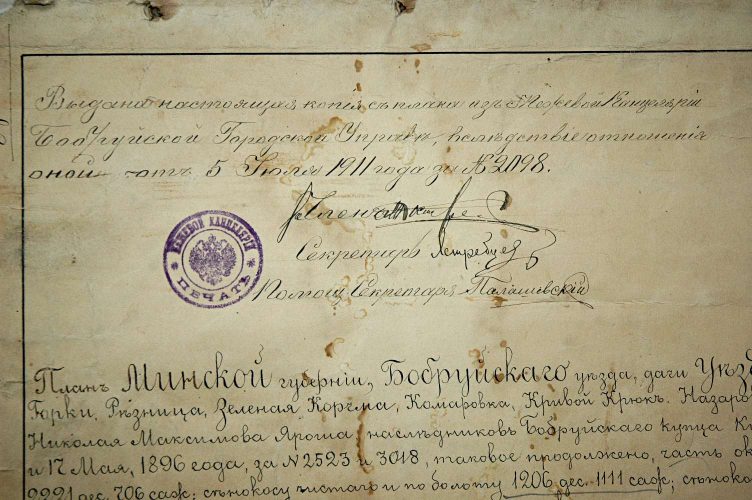 Выдана настоящая копія съ плана изъ Межевой Канцеляріи
Бобруйской Городской Управѣ, вслѣдствіе отношенія
оной отъ 5 Іюля 1911 года за № 2098.
Членъ
Секретарь
МЕЖЕВОЙ КАНЦЕЛЯРІИ
ПЕЧАТЬ
Помощ. Секретаря Палашевскій
Планъ Минской губерніи, Бобруйскаго уѣзда, дачи Уѣзд
Горки, Рѣзница, Зеленая Корчма, Комаровка, Кривой Крюкъ. Назаро
Николая Максимова Яроша, наслѣдниковъ Бобруйскаго купца К
и 17 Мая, 1896 года, за N 2523 и 3018, таковое продолжено, часть ок
2221 дес. 706 саж; сѣнокосу чистаго и по болоту 1206 дес. 1111 саж; сѣноко